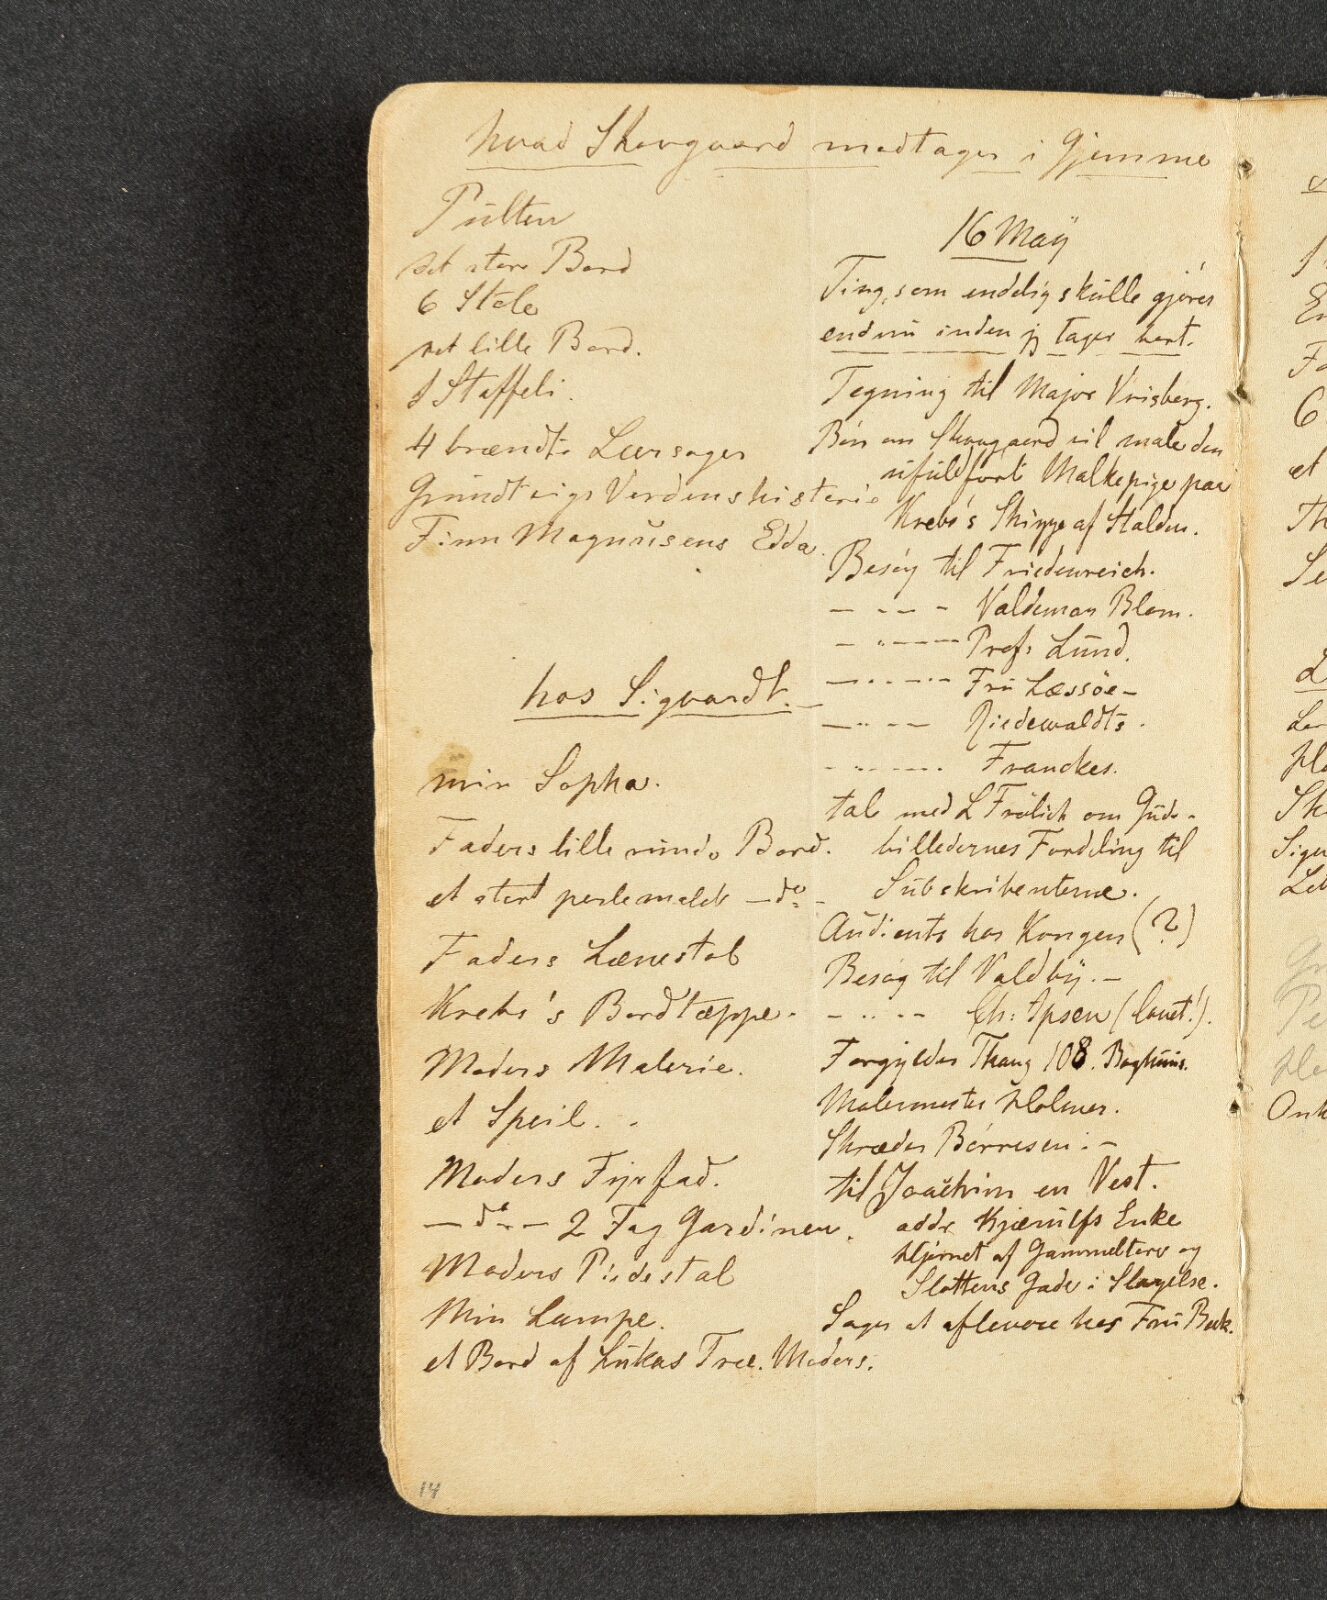 hvad Skovgaard modtager i Gjemme
Pulten
det store Bord
6 Stole
det lille Bord.
1 Staffeli.
4 brændte Leersager
Grundtvigs Verdenshistorie
Finn Magnusens Edda.
hos Sigvardt.
min Sopha.
Faders lille runde Bord.
et stort perlemalet — do —
Faders Lænestol
Krebs's Bordtæppe.
Moders Malerie.
et Speil.
Moders Fyrfad.
— do — 2 Fag Gardiner.
Moders Piedestal
Min Lampe.
et Bord af Lukas Træ. Moders.
16 May
Ting, som endelig skulle gjöres
endnu inden jeg tager bort.
Tegning til Major Vrisberg.
Bön om Skovgaard vil male den
ufuldfört Malkepige paa
Krebs's Skizze af Stalden.
Besög til Friedenreich.
— - - - Valdemar Blom.
— - — Prof: Lund.
— - - - Fru Læssöe —
— - - — Riedewaldts.
- - - - Franckes.
tal med L Frölich om Gude-
billedernes Fordeling til
Subskribenterne.
Audients hos Kongen (?)
Besög til Valdby. —
- - - - Ch: Ipsen (lovet!).
Forgylder Thaug 108. Baghuus.
Malermester Holmer.
Skræder Börresen. —
til Joachim en Vest.
addr Kjærulfs Enke
Hjörnet af Gammeltorv og
Slottens Gade i Slagelse.
Sager at aflevere hos Fru Beck.
14
6
et
Th
Se
Onk